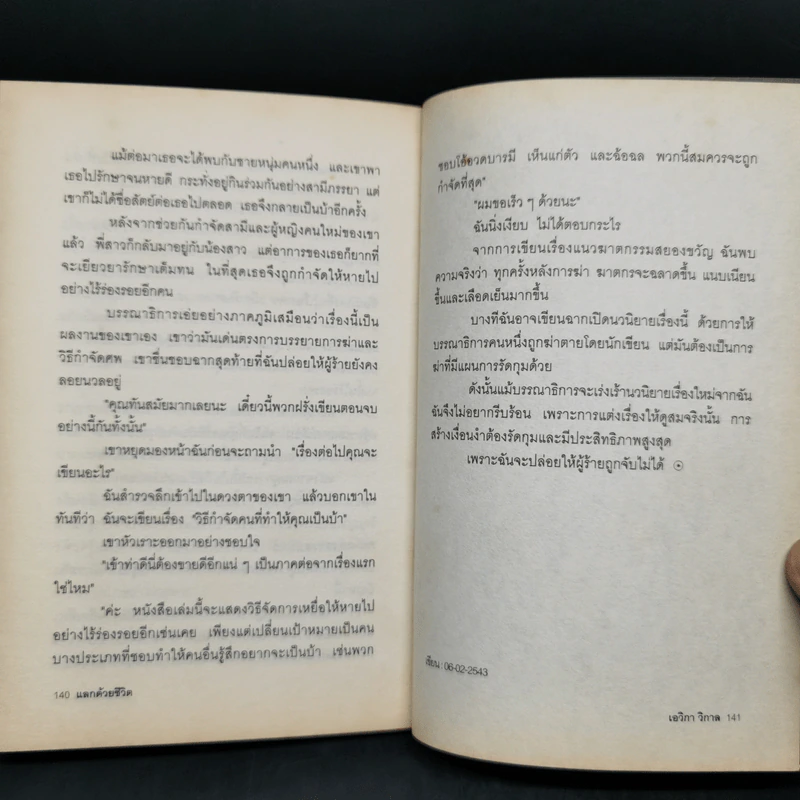 แม้ต่อมาเธอจะได้พบกับชายหนุ่มคนหนึ่ง และเขาพา
เธอไปรักษาจนหายดี กระทั่งอยู่กินร่วมกันอย่างสามีภรรยา แต่
เขาก็ไม่ได้ซื่อสัตย์ต่อเธอไปตลอด เธอจึงกลายเป็นบ้าอีกครั้ง
หลังจากช่วยกันกำจัดสามีและผู้หญิงคนใหม่ของเขา
แล้ว พี่สาวก็กลับมาอยู่กับน้องสาว แต่อาการของเธอก็ยากที่
จะเยียวยารักษาเต็มทน ในที่สุดเธอจึงถูกกำจัดให้หายไป
อย่างไร้ร่องรอยอีกคน
บรรณาธิการเอ่ยอย่างภาคภูมิเสมือนว่าเรื่องนี้เป็น
ผลงานของเขาเอง เขาว่ามันเด่นตรงการบรรยายการฆ่าและ
วิธีกำจัดศพ เขาชื่นชอบฉากสุดท้ายที่ฉันปล่อยให้ผู้ร้ายยังคง
ลอยนวลอยู่
"คุณทันสมัยมากเลยนะ เดี๋ยวนี้พวกฝรั่งเขียนตอนจบ
อย่างนี้กันทั้งนั้น"
เขาหยุดมองหน้าฉันก่อนจะถามนำ "เรื่องต่อไปคุณจะ
เขียนอะไร"
ฉันสำรวจลึกเข้าไปในดวงตาของเขา แล้วบอกเขาใน
ทันทีว่า ฉันจะเขียนเรื่อง "วิธีกำจัดคนที่ทำให้คุณเป็นบ้า"
เขาหัวเราะออกมาอย่างชอบใจ
"เข้าท่าดีนี่ต้องขายดีอีกแน่ ๆ เป็นภาคต่อจากเรื่องแรก
ใช่ไหม"
"ค่ะ หนังสือเล่มนี้จะแสดงวิธีจัดการเหยื่อให้หายไป
อย่างไร้ร่องรอยอีกเช่นเคย เพียงแต่เปลี่ยนเป้าหมายเป็นคน
บางประเภทที่ชอบทำให้คนอื่นรู้สึกอยากจะเป็นบ้า เช่นพวก
140 แลกด้วยชีวิต
ชอบโอ้อวดบารมี เห็นแก่ตัว และฉ้อฉล พวกนี้สมควรจะถูก
กำจัดที่สุด"
"ผมขอเร็ว ๆ ด้วยนะ"
ฉันนิ่งเงียบ ไม่ได้ตอบกระไร
จากการเขียนเรื่องแนวฆาตกรรมสยองขวัญ ฉันพบ
ความจริงว่า ทุกครั้งหลังการฆ่า ฆาตกรจะฉลาดขึ้น แนบเนียน
ขึ้นและเลือดเย็นมากขึ้น
บางทีฉันอาจเขียนฉากเปิดนวนิยายเรื่องนี้ ด้วยการให้
บรรณาธิการคนหนึ่งถูกฆ่าตายโดยนักเขียน แต่มันต้องเป็นการ
ฆ่าที่มีแผนการรัดกุมด้วย
ดังนั้นแม้บรรณาธิการจะเร่งเร้านวนิยายเรื่องใหม่จากฉัน
ฉันจึงไม่อยากรีบร้อน เพราะการแต่งเรื่องให้ดูสมจริงนั้น การ
สร้างเงื่อนงำต้องรัดกุมและมีประสิทธิภาพสูงสุด
เพราะฉันจะปล่อยให้ผู้ร้ายถูกจับไม่ได้ ⊙
เขียน : 06-02-2543
เอวิกา วิกาล 141